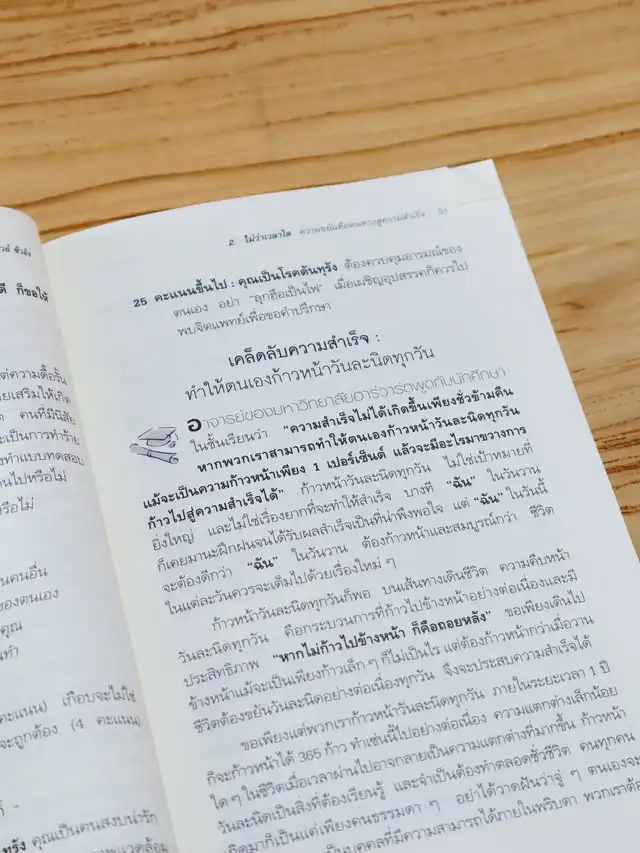 วย์ ชิวลิง
ดี ก็ขอให้
ต่ความดื้อรั้น
ายเสริมให้เกิด
คนที่มีนิสัย
ะเป็นการทำร้าย
งทำแบบทดสอบ
นไปหรือไม่
รือไม่
นคนอื่น
ของตนเอง
คุณ
ทำ
คะแนน) เกือบจะไม่ใช่
จะถูกต้อง (4 คะแนน)
คุณเป็นคนสงบน่ารัก
2. ไม่ว่าเวลาใด ความขยันคือหนทางสู่ความสำเร็จ 51
25 คะแนนขึ้นไป : คุณเป็นโรคดันทุรัง ต้องควบคุมอารมณ์ของ
ตนเอง อย่า "ลุกฮือเป็นไฟ" เมื่อเผชิญอุปสรรคก็ควรไป
พบจิตแพทย์เพื่อขอคำปรึกษา
เคล็ดลับความสำเร็จ :
ทำให้ตนเองก้าวหน้าวันละนิดทุกวัน
อาจารย์ของมหาวิทยาลัยฮาร์วาร์ดพูดกับนักศึกษา
ในชั้นเรียนว่า "ความสำเร็จไม่ได้เกิดขึ้นเพียงชั่วข้ามคืน
หากพวกเราสามารถทำให้ตนเองก้าวหน้าวันละนิดทุกวัน
แม้จะเป็นความก้าวหน้าเพียง 1 เปอร์เซ็นต์ แล้วจะมีอะไรมาขวางการ
ก้าวไปสู่ความสำเร็จได้" ก้าวหน้าวันละนิดทุกวัน ไม่ใช่เป้าหมายที่
ยิ่งใหญ่ และไม่ใช่เรื่องยากที่จะทำให้สำเร็จ บางที "ฉัน" ในวันวาน
ก็เคยมานะฝึกฝนจนได้รับผลสำเร็จเป็นที่น่าพึงพอใจ แต่ "ฉัน" ในวันนี้
จะต้องดีกว่า "ฉัน" ในวันวาน ต้องก้าวหน้าและสมบูรณ์กว่า ชีวิต
ในแต่ละวันควรจะเต็มไปด้วยเรื่องใหม่ ๆ
ก้าวหน้าวันละนิดทุกวันก็พอ บนเส้นทางเดินชีวิต ความคืบหน้า
วันละนิดทุกวัน คือกระบวนการที่ก้าวไปข้างหน้าอย่างต่อเนื่องและมี
ประสิทธิภาพ "หากไม่ก้าวไปข้างหน้า ก็คือถอยหลัง" ขอเพียงเดินไป
ข้างหน้าแม้จะเป็นเพียงก้าวเล็ก ๆ ก็ไม่เป็นไร แต่ต้องก้าวหน้ากว่าเมื่อวาน
ชีวิตต้องขยันวันละนิดอย่างต่อเนื่องทุกวัน จึงจะประสบความสำเร็จได้
ขอเพียงแต่พวกเราก้าวหน้าวันละนิดทุกวัน ภายในระยะเวลา 1 ปี
ก็จะก้าวหน้าได้ 365 ก้าว ทำเช่นนี้ไปอย่างต่อเนื่อง ความแตกต่างเล็กน้อย
ใด ๆ ในชีวิตเมื่อเวลาผ่านไปอาจกลายเป็นความแตกต่างที่มากขึ้น ก้าวหน้า
วันละนิดเป็นสิ่งที่ต้องเรียนรู้ และจำเป็นต้องทำตลอดชั่วชีวิต คนทุกคน
เกิดมาก็เป็นแค่เพียงคนธรรมดา ๆ อย่าได้วาดฝันว่าจู่ ๆ ตนเองจะ
เป็นบุคคลที่มีความสามารถได้ภายในพริบตา พวกเราต้อ